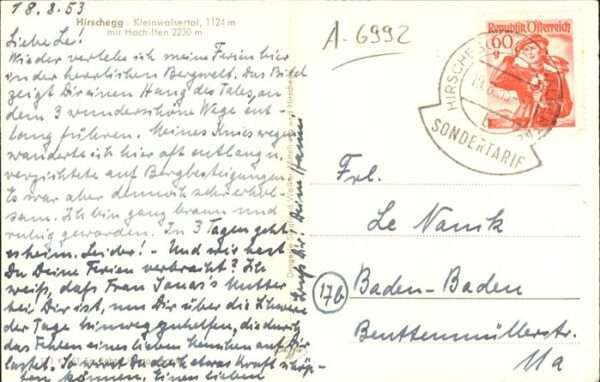 18.8.53
Hirschegg Kleinwalsertal, 1124 m
mit Hoch-Ifen 2230 m
Liebe Le!
Wieder verlebe ich meine Ferien hier
in der herrlichen Bergwelt. Das Bild
zeigt Dir einen Hang des Tales, an
dem 3 wunderschöne Wege ent-
lang führen. Meines Knies wegen
wanderte ich hier oft entlang,
verzichtete auf Bergbesteigungen.
Es war aber dennoch sehr erhol-
sam. Ich bin ganz braun und
ruhig geworden. In 3 Tagen geht
es heim. Leider! - Und wie hast
Du Deine Ferien verbracht? Ich
weiß, daß Frau Mutter
bei Dir ist, um Dir über die schwere
der Tage hinwegzuhelfen, die durch
das Fehlen eines lieben Menschen auf Dir
lastet. So wirst Du doch etwas Kraft schöp-
fen können. Einen lieben
Gruß Dir! Deine Hanni
A-6992
Republik Österreich
60
g
HIRSCHEGG
SONDERTARIF
Frl.
Le Nanik
17b
Baden-Baden
Beuttenmüllerstr.
11a